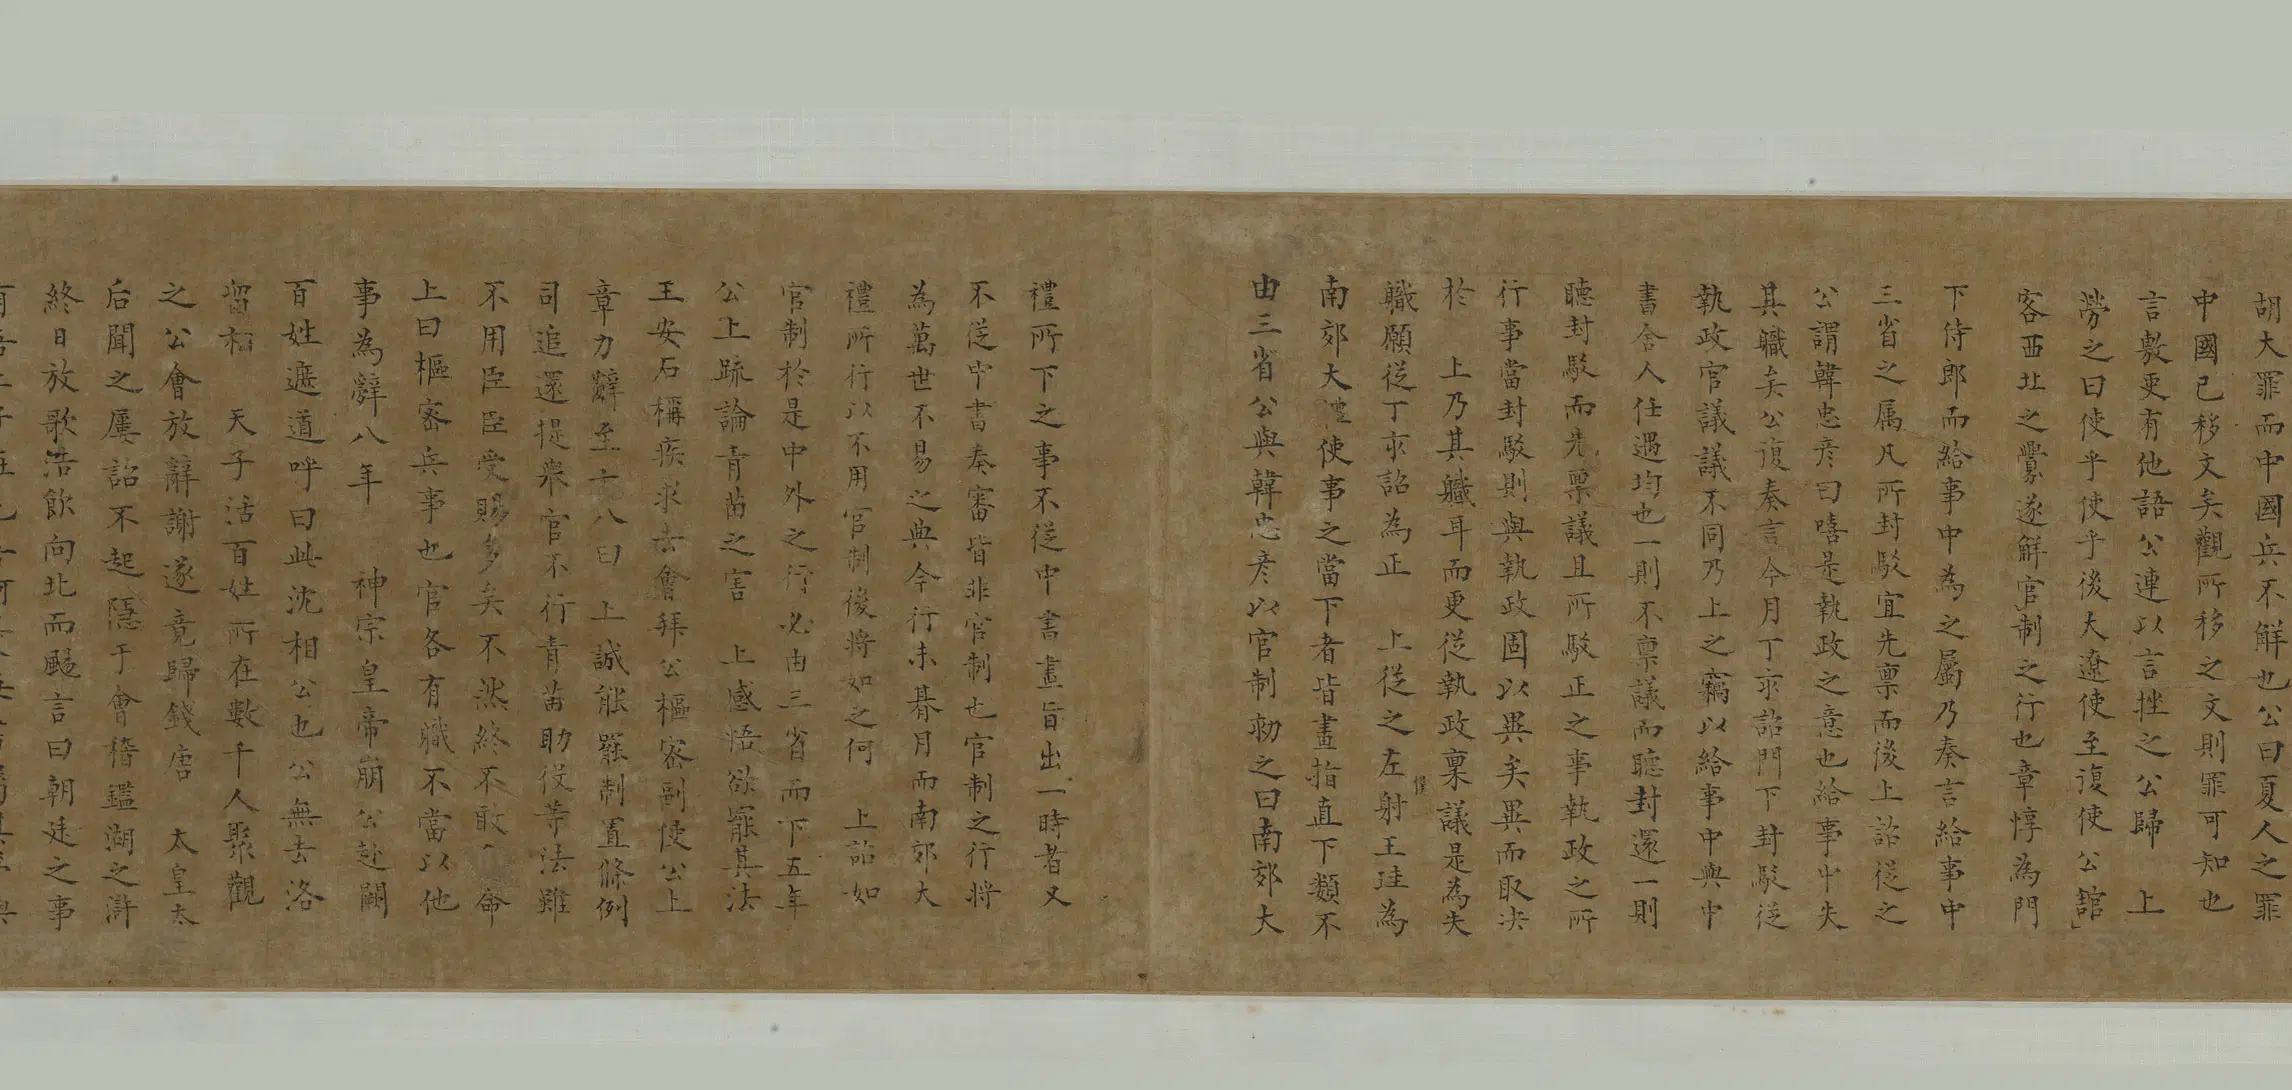 胡大罪而中國兵不解也公曰夏人之罪
中國已移文矣觀所移之文則罪可知也
言數更有他語公連以言挫之公歸 上
勞之曰使乎使乎後大遼使至復使公舘
客西北之釁遂解官制之行也章惇為門
下侍郎而給事中為之屬乃奏言給事中
三省之属凡所封駁宜先禀而後上詔從之
公謂韓忠彦曰嘻是執政之意也給事中失
其職矣公復奏言今月丁亥詔門下封駁從
執政官議議不同乃上之竊以給事中與中
書舍人任遇均也一則不禀議而聽封還一則
聽封駁而先禀議且所駁正之事執政之所
行事當封駁則與執政固以異矣異而取决
於 上乃其職耳而更從執政禀議是為失
職願從丁亥詔為正 上從之左僕射王珪為
南郊大禮使事之當下者皆畫指直下類不
由三省公與韓忠彦以官制劾之曰南郊大
禮所下之事不從中書畫旨出一時者又
不從中書奏審皆非官制也官制之行将
為萬世不易之典今行未朞月而南郊大
禮所行以不用官制後将如之何 上詔如
官制於是中外之行必由三省而下五年
公上疏論青苗之害 上感悟欲罷其法
王安石稱疾求去會拜公樞密副使公上
章力辭至十八曰 上誠能罷制置條例
司追還提舉官不行青苗助役等法雖
不用臣臣受賜多矣不然終不敢受命
上曰樞密兵事也官各有職不當以他
事為辭八年 神宗皇帝崩公赴闕
百姓遮道呼曰此沈相公也公無去洛
留相 天子活百姓所在數千人聚觀
之公會放辭謝遂竟歸錢唐 太皇太
后聞之屢詔不起隱于會稽鑑湖之滸
終日放歌浩飲向北而颺言曰朝廷之事